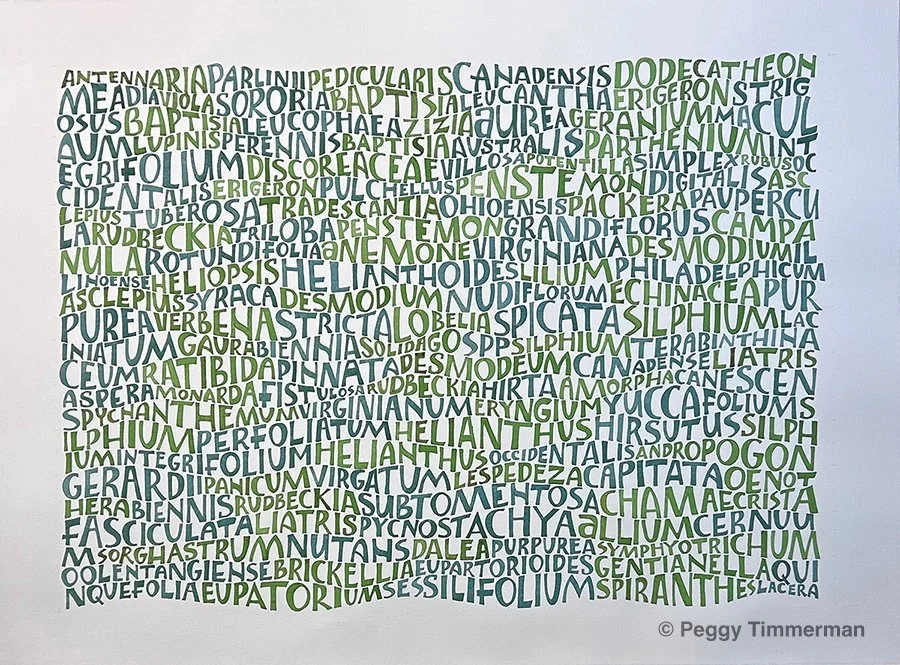 ANTENNARIAPARLINIIPEDICULARISCANADENSISDODECATHEON
MEADIAVIOLASORORIABAPTISIALEUCANTHAERIGERONSTRIG
OSUSBAPTISIALEUCOPHAEAZIZIAaUREAGERANIUMMACUL
AUMLUPINISPERENNISBAPTISIAAUSTRALISPARTHENIUMINT
EGRIFOLIUMDISCOREACEAEVILLOSAPOTENTILLASIMPLEXRUBUSOC
CIDENTALISERIGERONPULCHELLUSPENSTEMONDIGITALISASC
LEPIUSTUBEROSATRADESCANTIAOHIOENSISPACKERAPAUPERCU
LARUDBECKIATRILOBAPENSTEMONGRANDIFLORUSCAMPA
NULAROTUNDIFOLIAaNEMONEVIRGINIANADESMODIUMIL
LINOENSEHELIOPSISHELIANTHOIDESLILIUMPHILADELPHICUM
ASCLEPIUSSYRACADESMODIUMNUDIFLORUMECHINACEAPUR
PUREAVERBENASTRICTALOBELIASPICATASILPHIUMLAC
INIATUMGAURABIENNIASOLIDAGOSPPSILPHIUMTEREBINTHINA
CEUMRATIBIDAPINNATADESMODEUMCANADENSELIATRIS
ASPERAMONARDAFISTULOSARUDBECKIAHIRTAAMORPHACANESCEN
SPYCHANTHEMUMVIRGINIANUMERYNGIUMYUCCAFOLIUMS
ILPHIUMPERFOLIATUMHELIANTHUSHIRSUTUSSILPH
IUMINTEGRIFOLIUMHELIANTHUSOCCIDENTALISANDROPOGON
GERARDIIPANICUMVIRGATUMLESPEDEZACAPITATAOENOT
HERABIENNISRUDBECKIASUBTOMENTOSACHAMAECRISTA
FASCICULATALIATRISPYCNOSTACHYAaLLIUMCERNUU
MSORGHASTRUMNUTANSDALEAPURPUREASYMPHYOTRICHUM
OOLENTANGIENSEBRICKELLIAEUPARTORIOIDESGENTIANELLAQUI
NQUEFOLIAEUPATORIUMSESSILIFOLIUMSPIRANTHESLACERA
© Peggy Timmerman